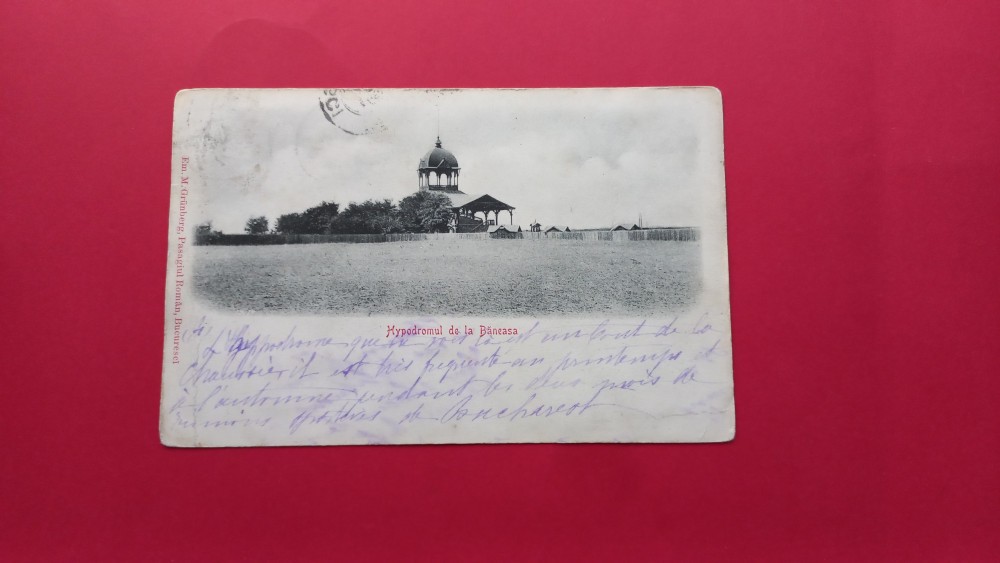 Em. M. Grünberg, Pasagiul Român, Bucuresci
Hypodromul de la Băneasa
L'Hyppodrome que voila est au bout de la
Chaussée il est très fréquenté au printemps et
à l'automne pendant les deux mois de
réunions de Bucharest